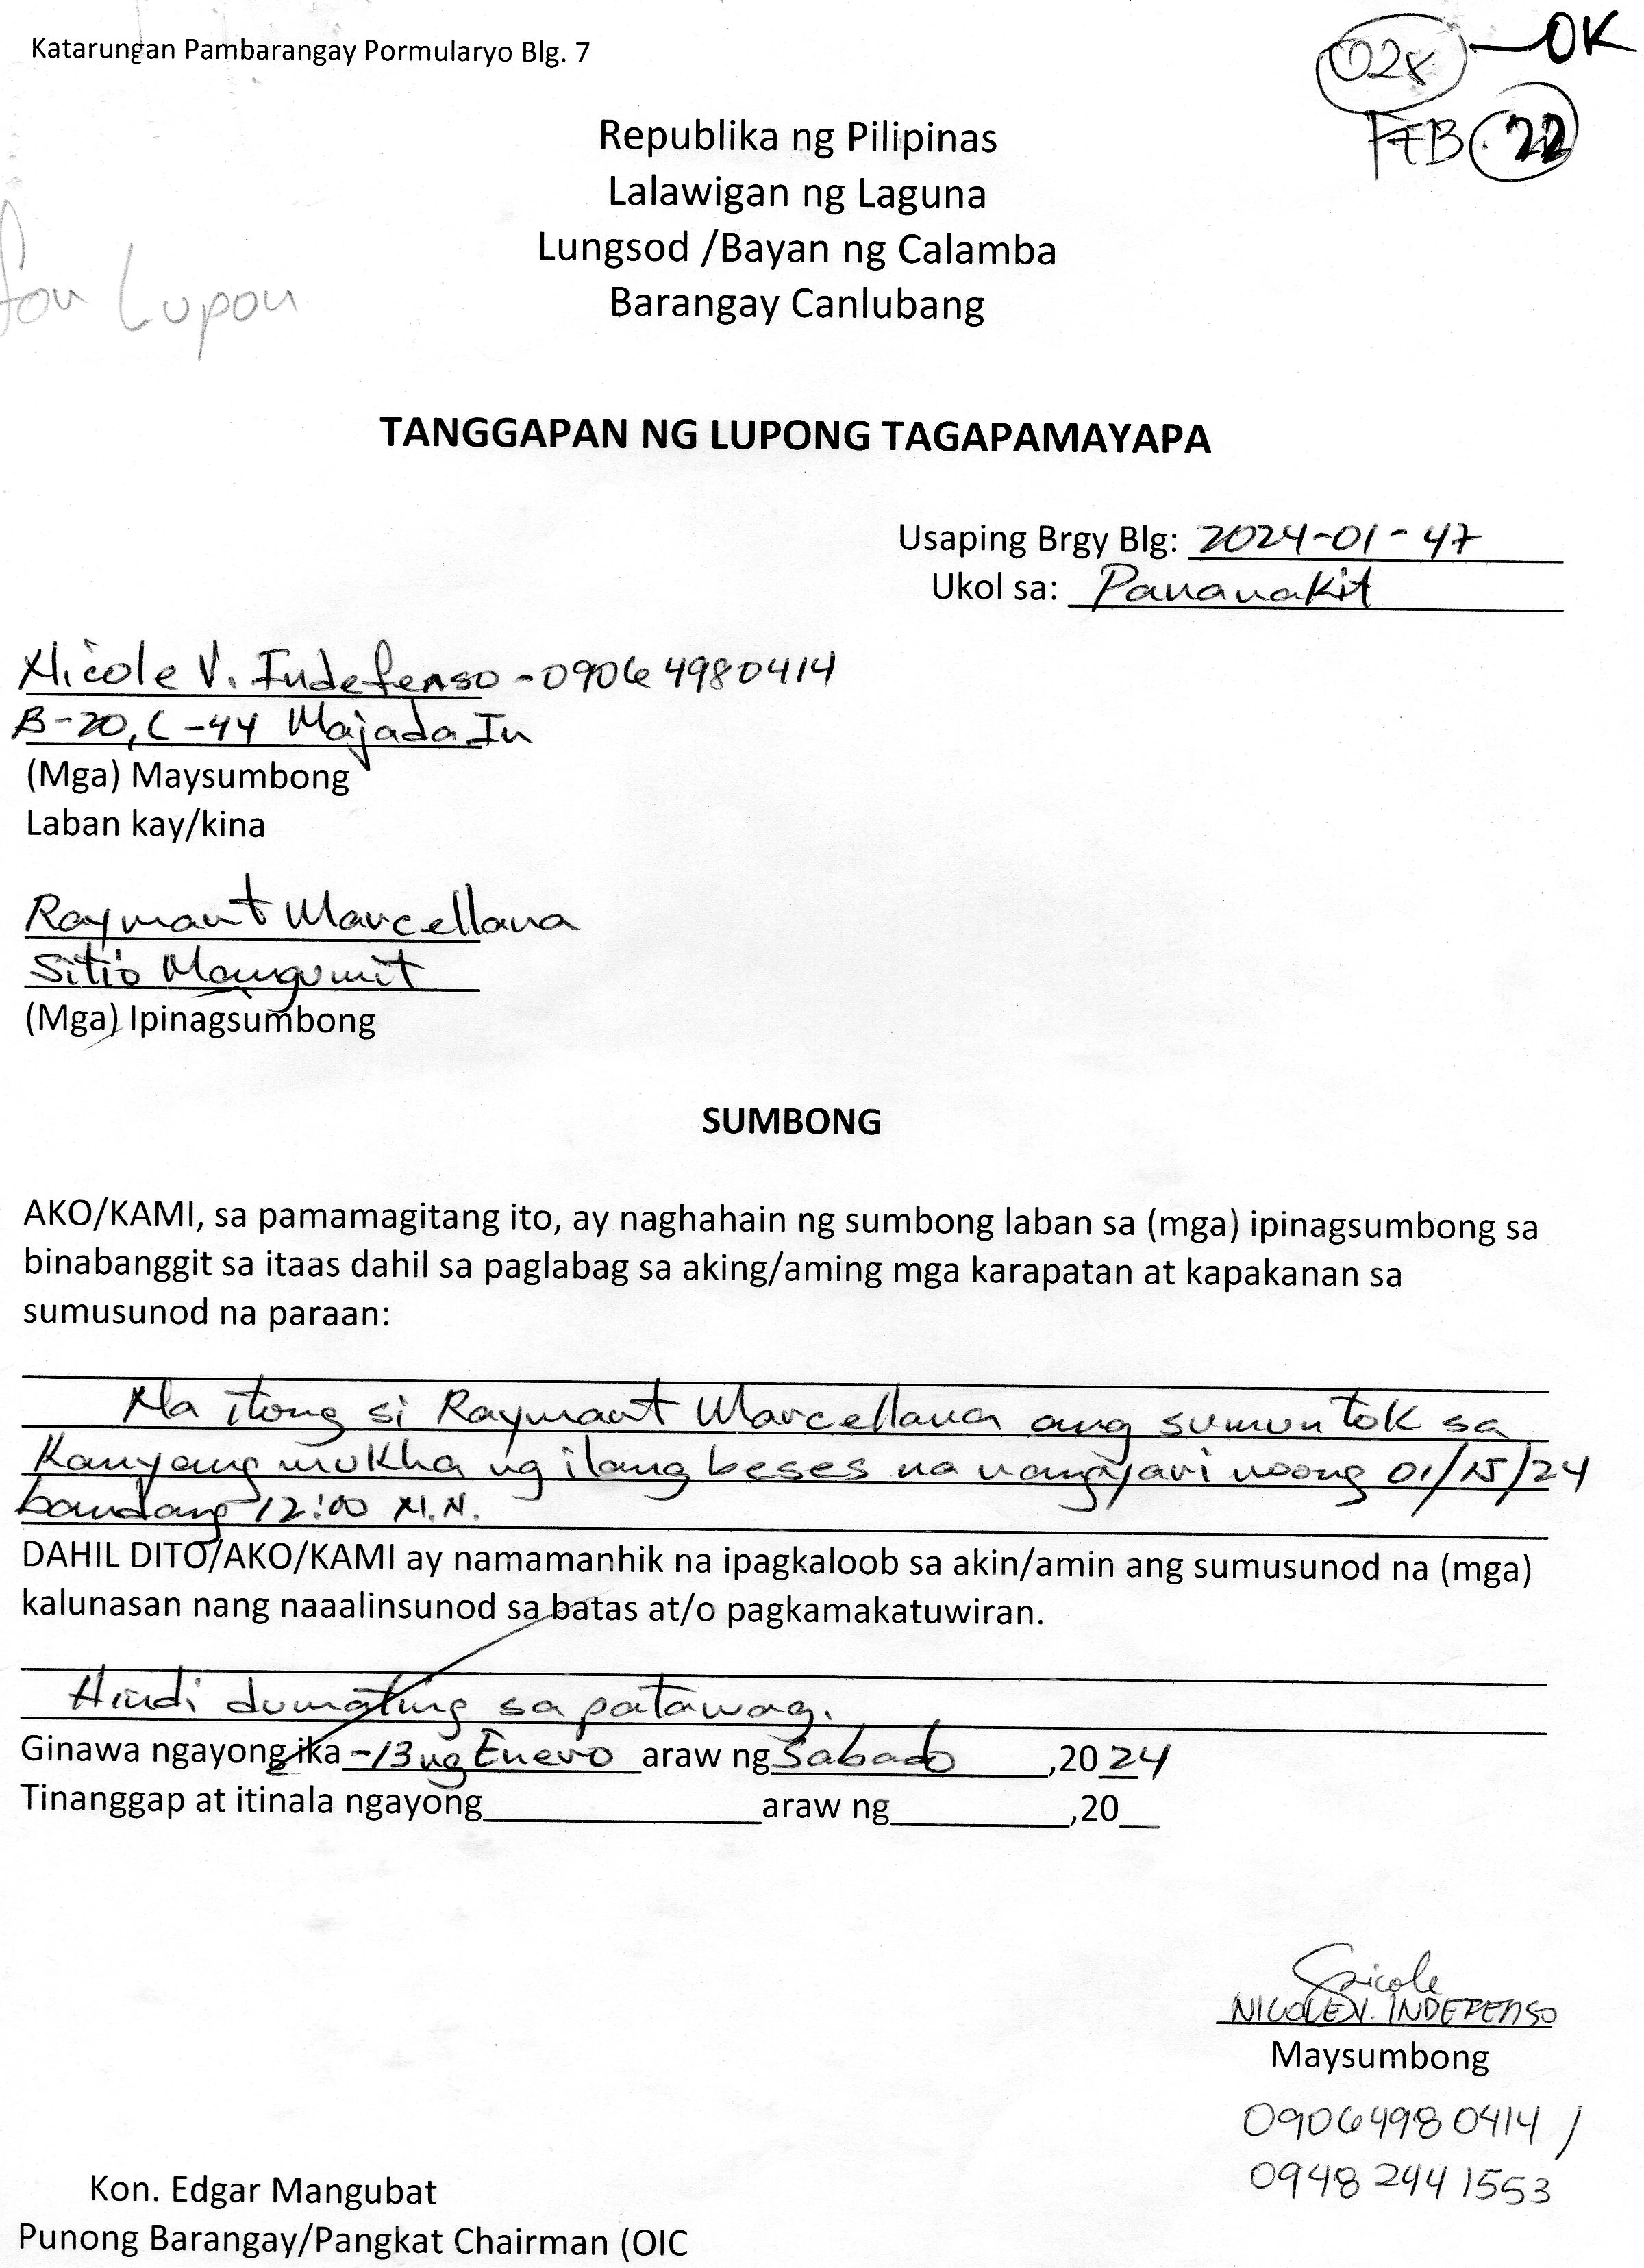 Katarungan Pambarangay Pormularyo Blg. 7
02x — OK
FEB 22
Republika ng Pilipinas
Lalawigan ng Laguna
Lungsod /Bayan ng Calamba
Barangay Canlubang
for Lupon
TANGGAPAN NG LUPONG TAGAPAMAYAPA
Usaping Brgy Blg: 2024-01-47
Ukol sa: Pananakit
Nicole V. Indefenso - 09064980414
B-20, L-44 Majada In
(Mga) Maysumbong
Laban kay/kina
Raymant Marcellana
Sitio Mangumit
(Mga) Ipinagsumbong
SUMBONG
AKO/KAMI, sa pamamagitang ito, ay naghahain ng sumbong laban sa (mga) ipinagsumbong sa
binabanggit sa itaas dahil sa paglabag sa aking/aming mga karapatan at kapakanan sa
sumusunod na paraan:
Na itong si Raymant Marcellana ang sumuntok sa
Kanyang mukha ng ilang beses na nangyari noong 01/15/24
bandang 12:00 M.N.
DAHIL DITO/AKO/KAMI ay namamanhik na ipagkaloob sa akin/amin ang sumusunod na (mga)
kalunasan nang naaalinsunod sa batas at/o pagkamakatuwiran.
Hindi dumating sa patawag.
Ginawa ngayong ika -13 ng Enero araw ng Sabado ,20 24
Tinanggap at itinala ngayong araw ng ,20
Nicole
NICOLE V. INDEFENSO
Maysumbong
09064980414 /
0948 244 1553
Kon. Edgar Mangubat
Punong Barangay/Pangkat Chairman (OIC